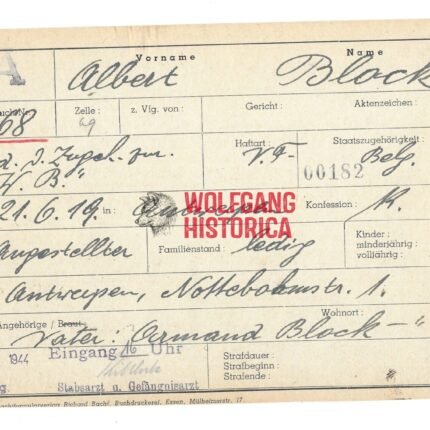 Vorname Name
A Albert Block
Buch Nr. Zelle: z. Vfg. von: Gericht: Aktenzeichen:
68 69
Haftart: Staatszugehörigkeit:
V.F. 00182 Belg.
d. J. Zugeh. zur
"W. B."
21.6.19. in: Antwerpen Konfession: K.
WOLFGANG
HISTORICA
Angestellter Familienstand: ledig Kinder:
minderjährig:
volljährig:
Antwerpen, Nottebohmstr. 1.
Angehörige / Braut: Wohnort:
Vater: Armand Block — "
1944 Eingang 16 Uhr
Stabsarzt u. Gefängnisarzt
Strafdauer:
Strafbeginn:
Strafende:
Richard Bacht, Buchdruckerei, Essen, Mülheimerstr. 17